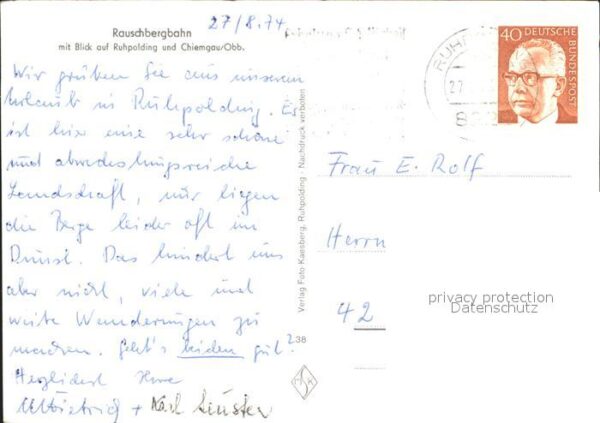 27/8.74
Rauschbergbahn
mit Blick auf Ruhpolding und Chiemgau/Obb.
Wir grüßen Sie aus unserem
Urlaub in Ruhpolding. Es
ist hier eine sehr schöne
und abwechslungsreiche
Landschaft, nur liegen
die Berge leider oft im
Dunst. Das hindert uns
aber nicht, viele und
weite Wanderungen zu
machen. Geht's beiden gut?
Herzlichst Ihre
+ Karl
Verlag Foto Kaesberg, Ruhpolding · Nachdruck verboten
238
40 DEUTSCHE BUNDESPOST
RUHP
27
Frau E. Rolf
Herrn
42
privacy protection
Datenschutz